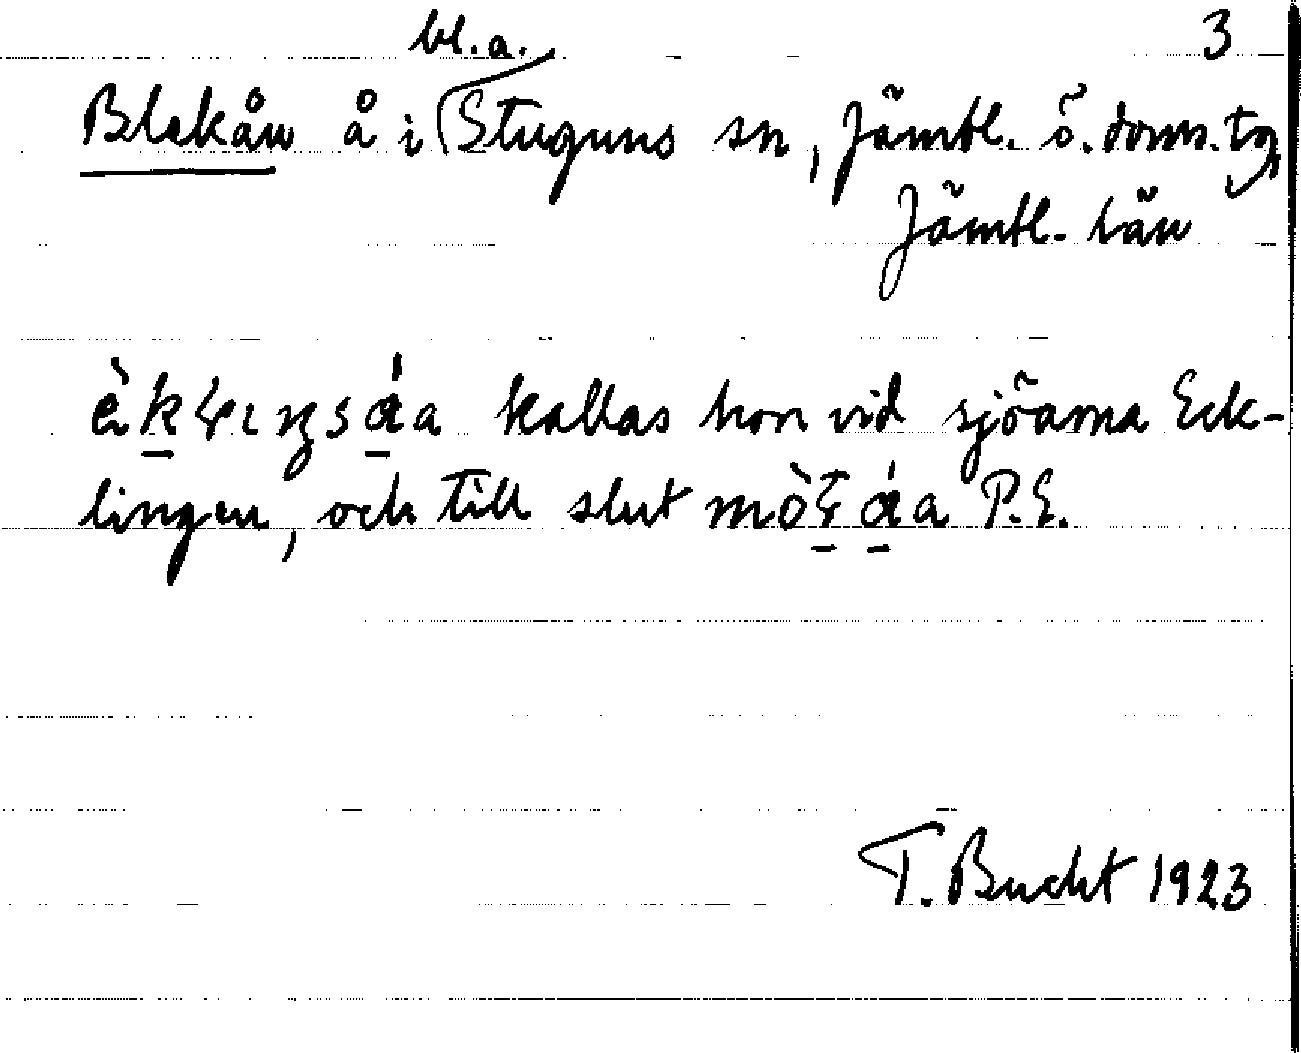 bl.a. 3
Blekån å i Stuguns sn, Jämtl. ö. doms. tg
Jämtl. län
kallas hon vid sjöarna Eck-
lingen, och till slut P.E.
T. Bucht 1923